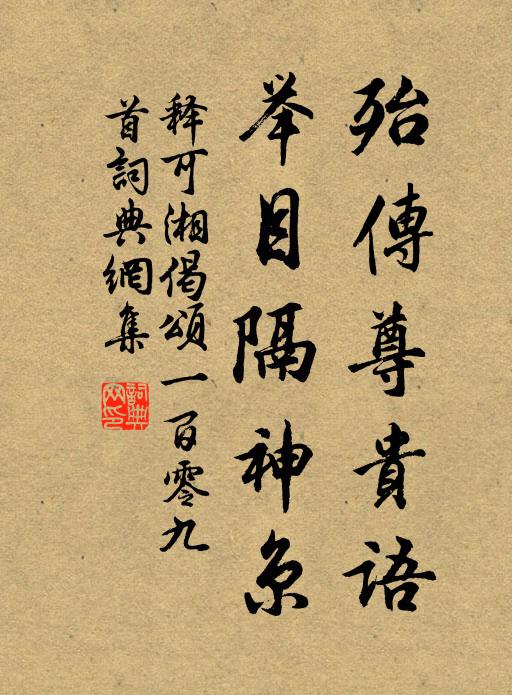 殆傳尊貴語
举目隔神京
释可湘偈頌一百零九
首詞典網集
詞典
网印